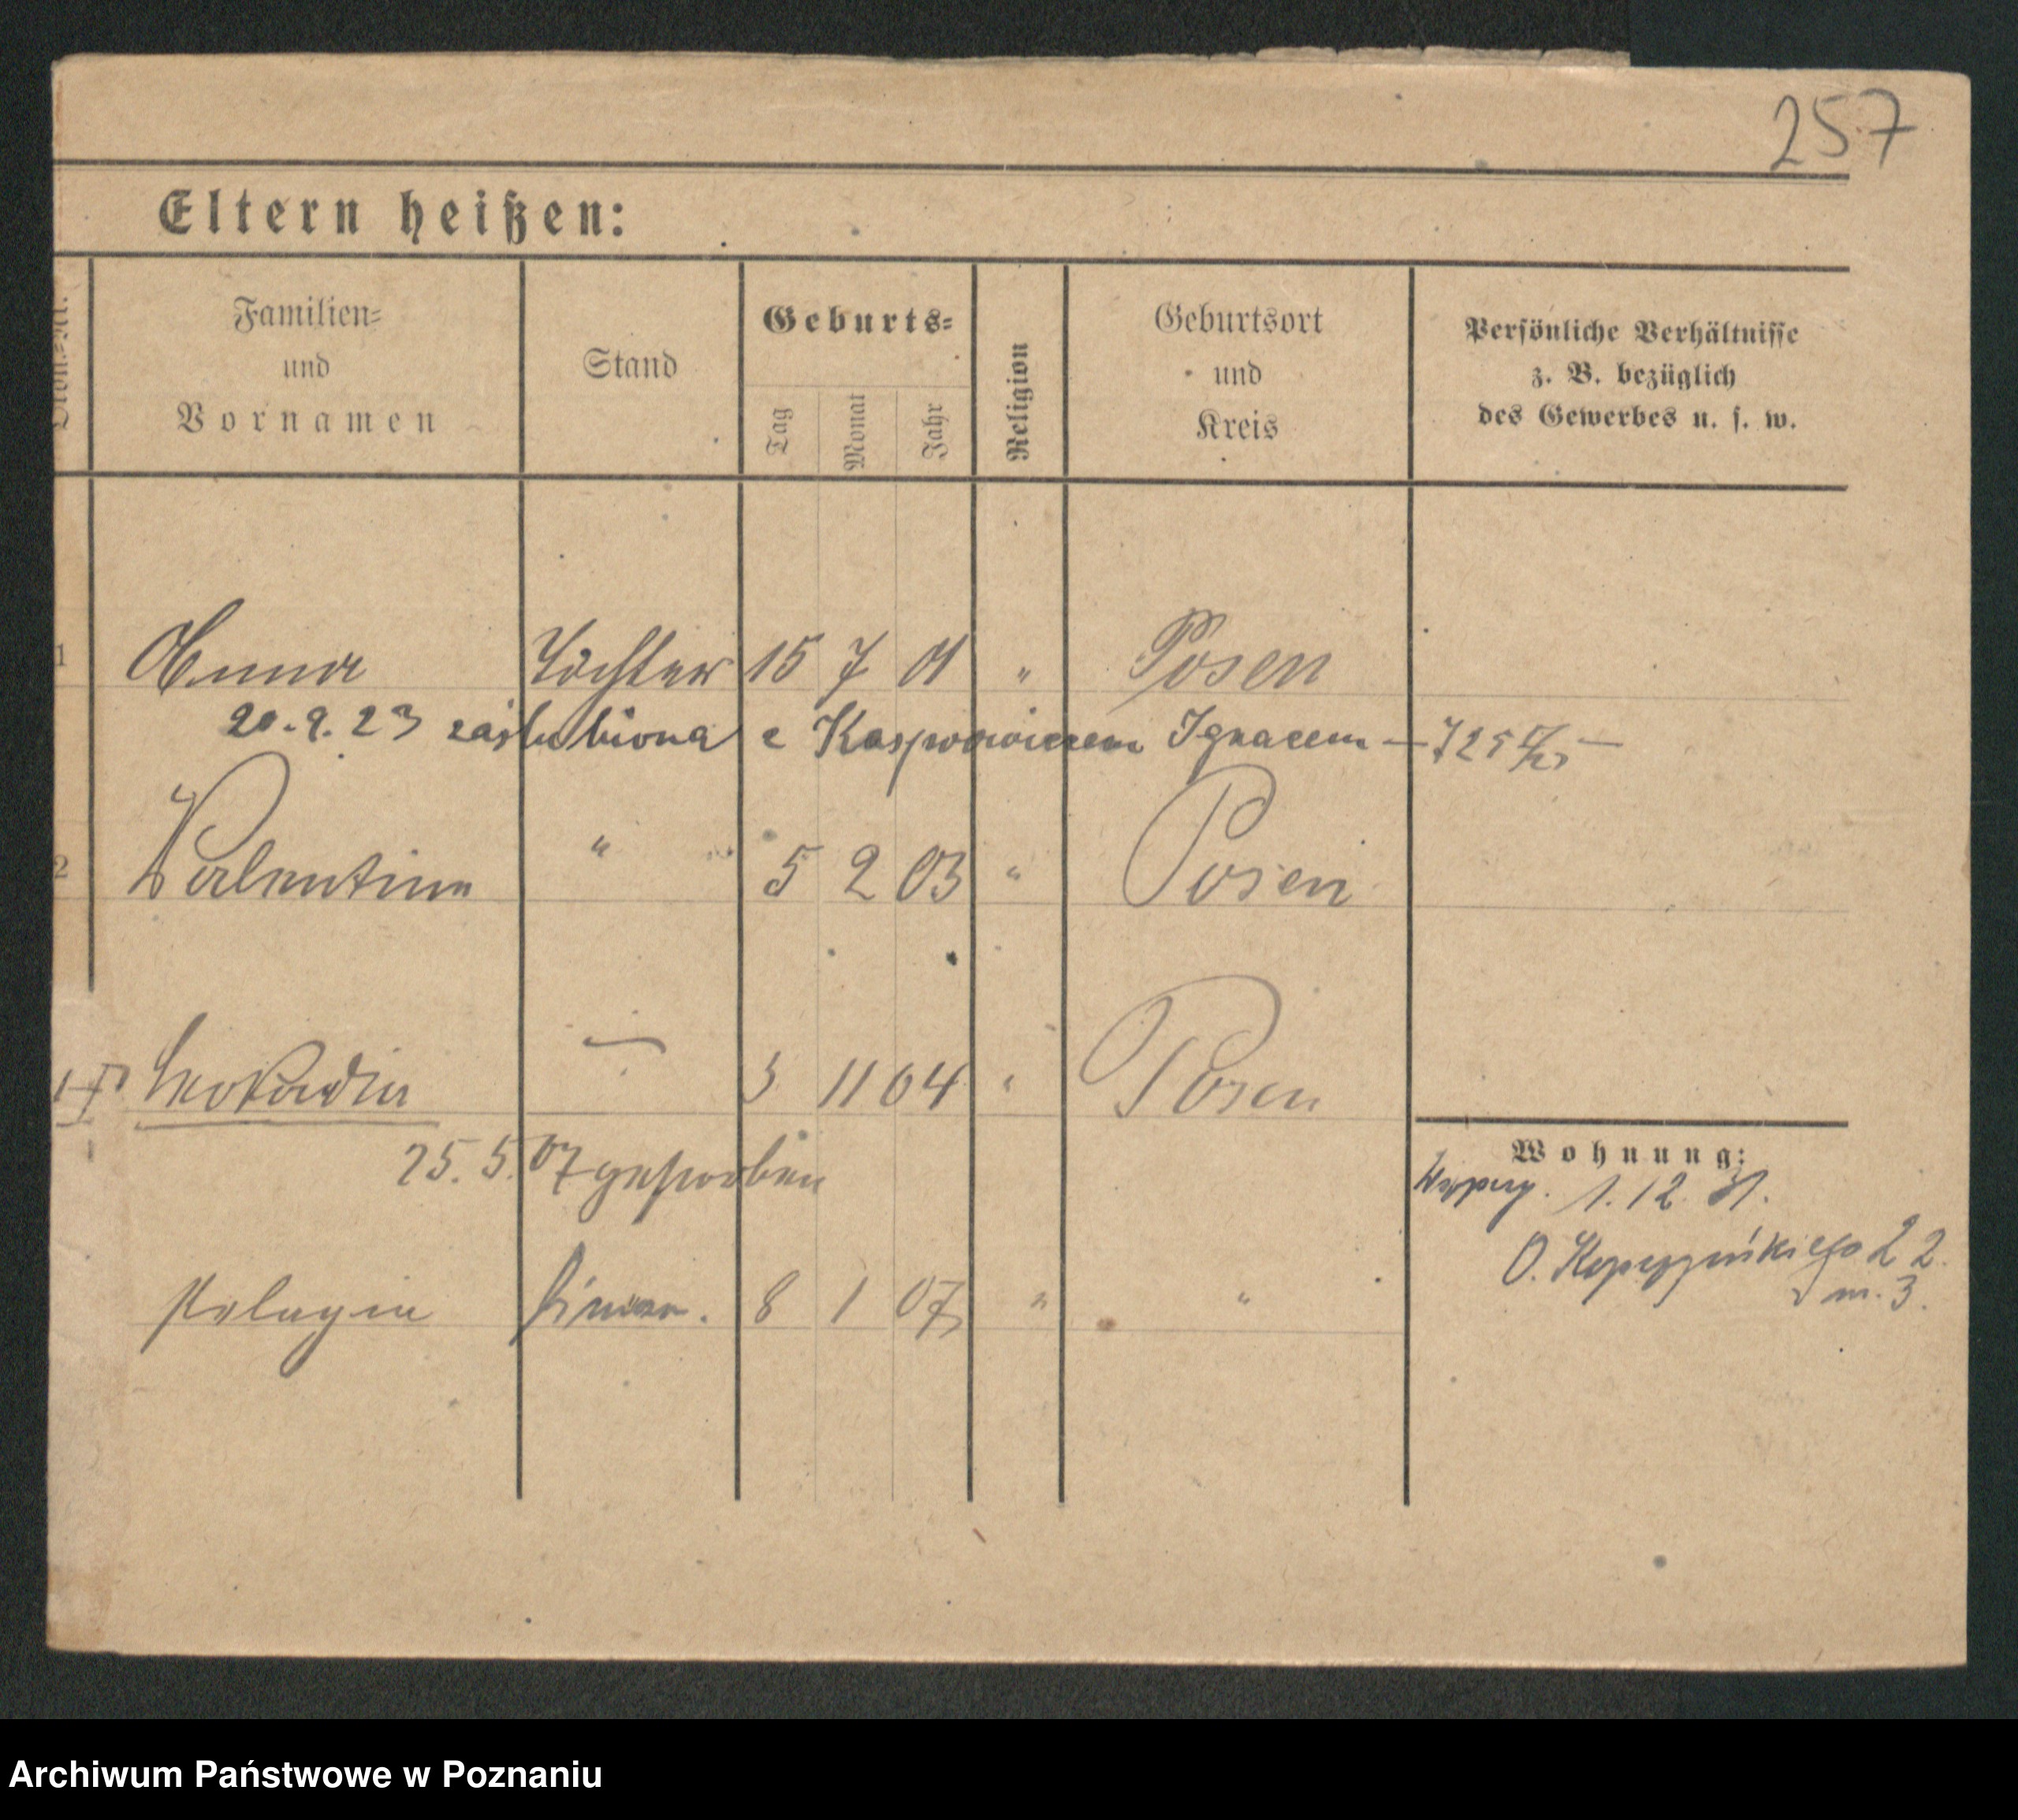 257
Eltern heißen:
Familien=
und
Vornamen
Stand
Geburts=
Tag
Monat
Jahr
Religion
Geburtsort
und
Kreis
Persönliche Verhältnisse
z. B. bezüglich
des Gewerbes u. s. w.
1 Anna Tochter 15 7 01 " Posen
20.9.23 zaślubiona z Kasprowiczem Ignacem — 725/23 —
2 Valentina " 5 2 03 " Posen
Leokadia — 3 11 04 " Posen
25.5.07 gestorben
Wohnung:
1.12.31.
O. Kopczyńskiego 22
m. 3.
Pelagia 8 1 07 " "
Archiwum Państwowe w Poznaniu